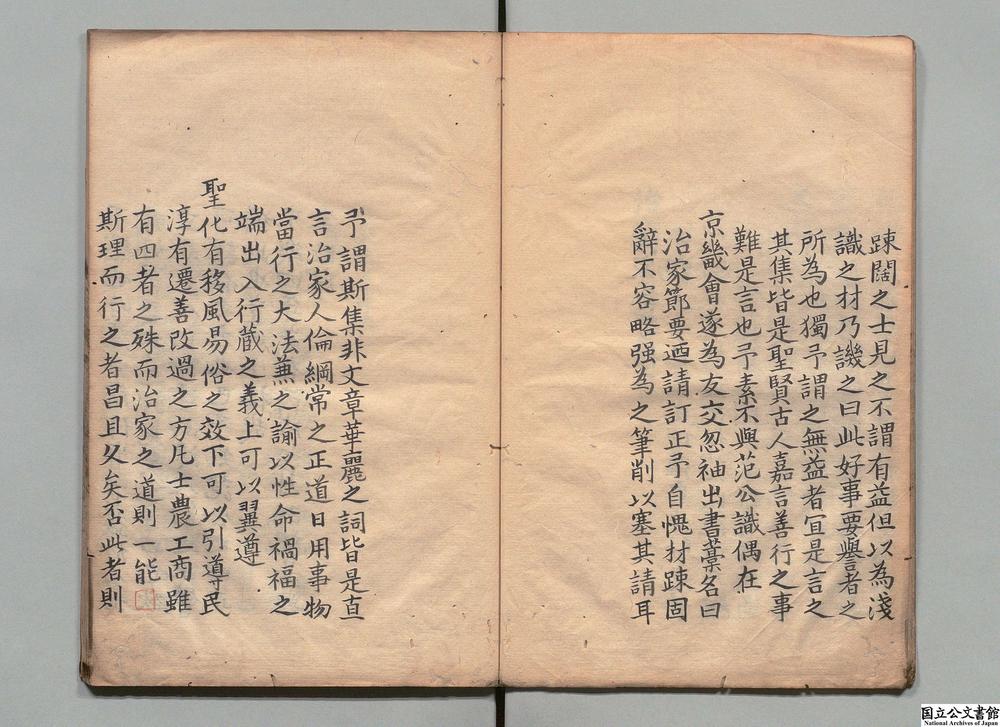 踈闊之士見之不謂有益但以為淺
識之材乃譏之曰此好事要譽者之
所為也獨予謂之無益者冝是言之
其集皆是聖賢古人嘉言善行之事
難是言也予素不與范公識偶在
京畿會遂為友交忽袖出書藁名曰
治家節要廼請訂正予自愧材踈固
辭不容略强為之筆削以塞其請耳
予謂斯集非文章華麗之詞皆是直
言治家人倫綱常之正道日用事物
當行之大法兼之諭以性命禍福之
端出入行蔵之義上可以翼遵
聖化有移風易俗之效下可以引導民
淳有遷善改過之方凡士農工商雖
有四者之殊而治家之道則一能
斯理而行之者昌且久矣否此者則
国立公文書館
National Archives of Japan